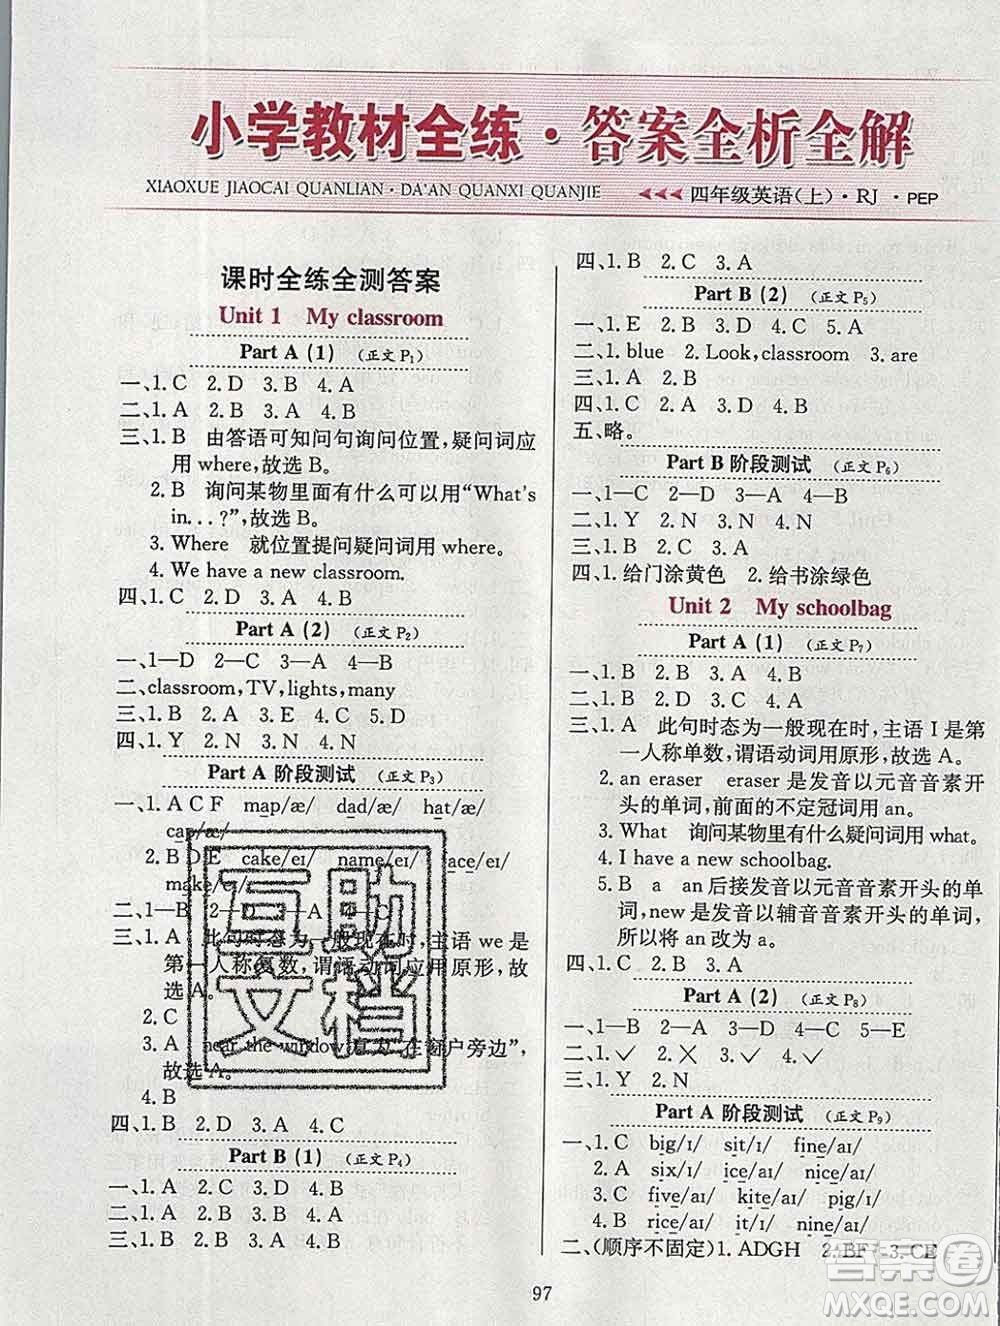 小学教材全练·答案全析全解
XIAOXUE JIAOCAI QUANLIAN·DA'AN QUANXI QUANJIE
四年级英语(上)·RJ·PEP
课时全练全测答案
Unit 1 My classroom
Part A (1) (正文 P1)
一、1. C 2. D 3. B 4. A
二、1. A 2. B 3. A 4. B
三、1. B 由答语可知问句询问位置,疑问词应
用 where,故选 B。
2. B 询问某物里面有什么可以用“What's
in...?”,故选 B。
3. Where 就位置提问疑问词用 where。
4. We have a new classroom.
四、1. C 2. D 3. A 4. B
Part A (2) (正文 P2)
一、1—D 2—C 3—A 4—B
二、classroom, TV, lights, many
三、1. B 2. A 3. E 4. C 5. D
四、1. Y 2. N 3. N 4. N
Part A 阶段测试 (正文 P3)
一、1. A C F map/æ/ dad/æ/ hat/æ/
cap/æ/
2. B D E cake/eɪ/ name/eɪ/ face/eɪ/
make/eɪ/
二、1—B 2—D 3—A 4—C
三、1. A 此句时态为一般现在时,主语 we 是
第一人称复数,谓语动词应用原形,故
选 A。
2. C
3. A near the window 意为“在窗户旁边”,
故选 A。
4. B
四、1. B 2. D 3. A 4. C
Part B (1) (正文 P4)
一、1. A 2. C 3. D 4. B
二、1. A 2. B 3. A 4. B
三、1. B 2. A 3. A 4. B
四、1. B 2. C 3. A
Part B (2) (正文 P5)
一、1. E 2. B 3. D 4. C 5. A
二、1. blue 2. Look, classroom 3. are
三、1. A 2. B
四、1. C 2. A 3. D 4. B
五、略。
Part B 阶段测试 (正文 P6)
一、1—C 2—D 3—A 4—B
二、1. Y 2. N 3. N 4. N
三、1. B 2. C 3. D 4. A
四、1. 给门涂黄色 2. 给书涂绿色
Unit 2 My schoolbag
Part A (1) (正文 P7)
一、1. B 2. B 3. A 4. B
二、1. C 2. B 3. D 4. A
三、1. A 此句时态为一般现在时,主语 I 是第
一人称单数,谓语动词用原形,故选 A。
2. an eraser eraser 是发音以元音音素开
头的单词,前面的不定冠词用 an。
3. What 询问某物里有什么疑问词用 what。
4. I have a new schoolbag.
5. B a an 后接发音以元音音素开头的单
词,new 是发音以辅音音素开头的单词,
所以将 an 改为 a。
四、1. C 2. B 3. A
Part A (2) (正文 P8)
一、1—B 2—A 3—D 4—C 5—E
二、1. ✓ 2. ✕ 3. ✓ 4. ✓
三、1. Y 2. N
Part A 阶段测试 (正文 P9)
一、1. C big/ɪ/ sit/ɪ/ fine/aɪ/
2. A six/ɪ/ ice/aɪ/ nice/aɪ/
3. C five/aɪ/ kite/aɪ/ pig/ɪ/
4. B rice/aɪ/ it/ɪ/ nine/aɪ/
二、(顺序不固定) 1. ADGH 2. BF 3. CE
97
互助
文档
答案圈
MXQE.COM